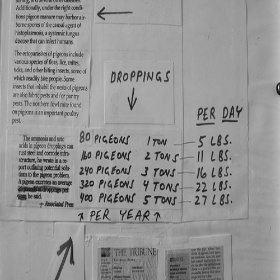 Additionally, under the right condi-
tions pigeon manure may harbor air-
borne spores of the causal agent of
histoplasmosis, a systemic fungus
disease that can infect humans.
The ectoparasites of pigeons include
various species of flies, lice, mites,
ticks, and other biting insects, some of
which readily bite people. Some
insects that inhabit the nests of pigeons
are also fabric pests and/or pantry
pests. The number found
on pigeons is an important poultry
pest.
DROPPINGS
PER DAY
The ammonia and uric
acids in pigeon droppings can
rust steel and corrode infra-
structure, he wrote in a re-
port outlining potential solu-
tions to the pigeon problem.
A pigeon excretes an average
he said.
Associated Press
80 PIGEONS 1 TON — 5 LBS.
160 PIGEONS 2 TONS — 11 LBS.
240 PIGEONS 3 TONS — 16 LBS.
320 PIGEONS 4 TONS — 22 LBS.
400 PIGEONS 5 TONS — 27 LBS.
PER YEAR
THE TRIBUNE